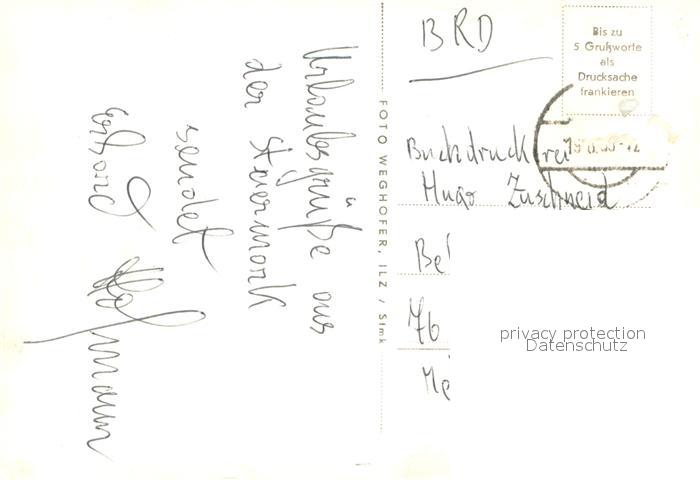 Urlaubsgrüße aus
der Steiermark
sendet
Erhard Hofmann
FOTO WEGHOFER, ILZ / Stmk
BRD
Bis zu
5 Grußworte
als
Drucksache
frankieren
Buchdruckerei
Hugo Zuschneid
Be
76
privacy protection
Datenschutz